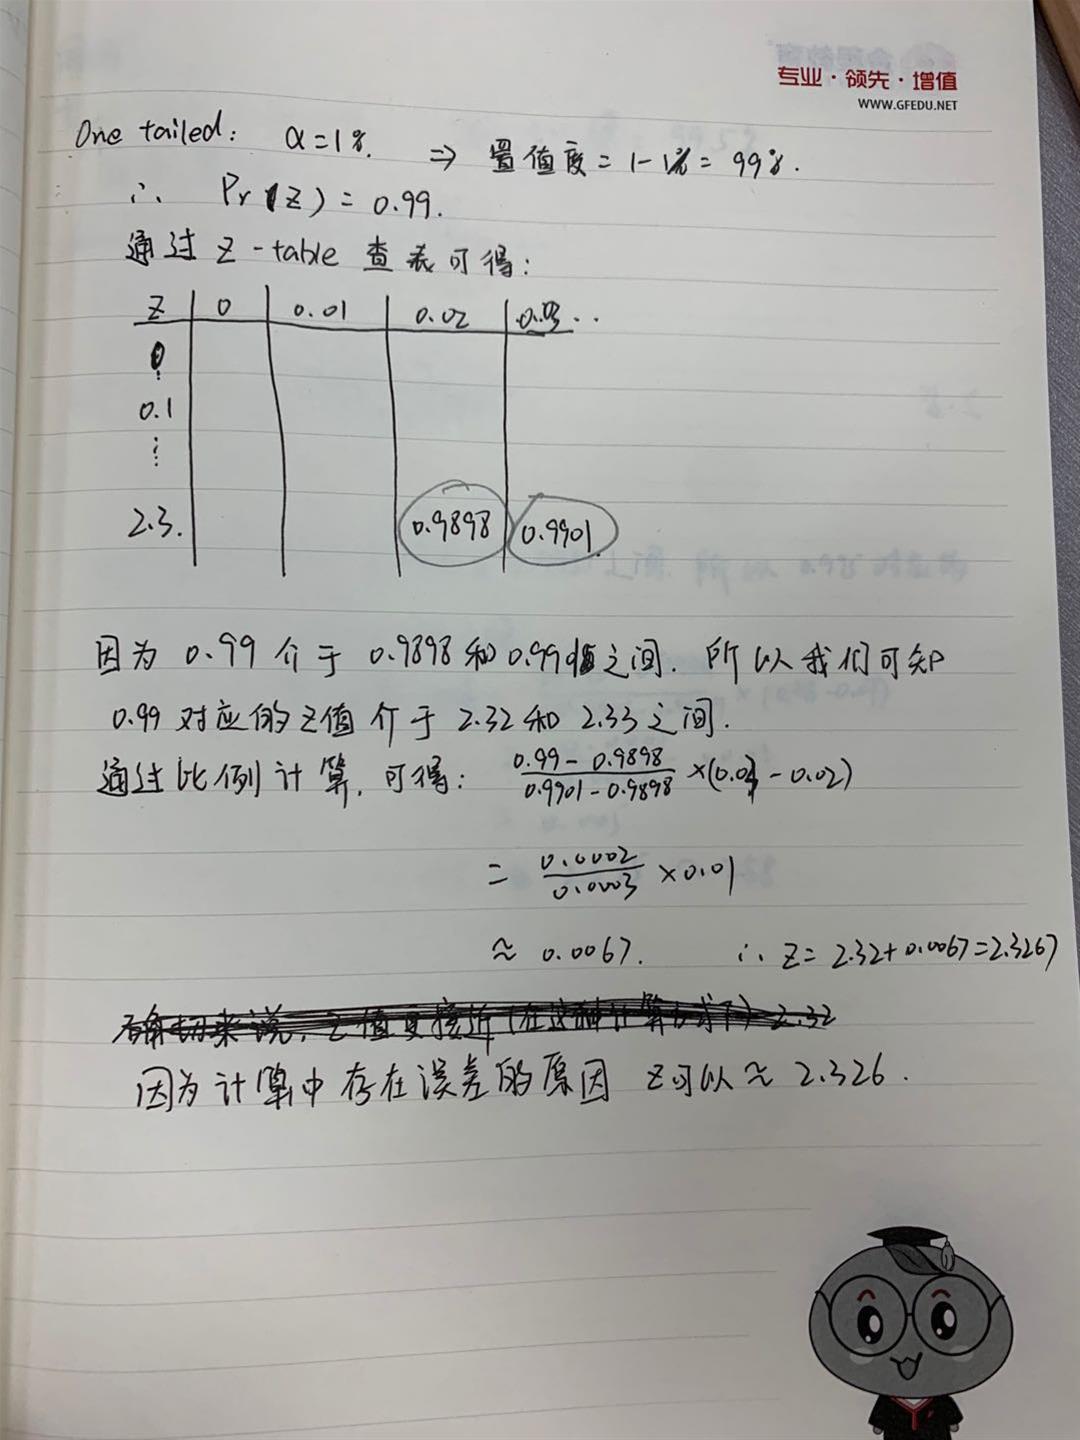 专业·领先·增值
WWW.GFEDU.NET
One tailed: α=1%. ⇒ 置值度=1-1%=99%.
∴ Pr(Z)=0.99.
通过 Z-table 查表可得:
Z 0 0.01 0.02 0.03...
0
0.1
⋮
2.3. 0.9898 0.9901
因为 0.99 介于 0.9898 和 0.9901 之间. 所以我们可知
0.99 对应的Z值介于 2.32 和 2.33 之间.
通过比例计算, 可得: (0.99-0.9898)/(0.9901-0.9898) ×(0.03-0.02)
= 0.0002/0.0003 ×0.01
≈ 0.0067. ∴ Z= 2.32+0.0067=2.3267
因为计算中存在误差的原因 Z可以≈ 2.326.